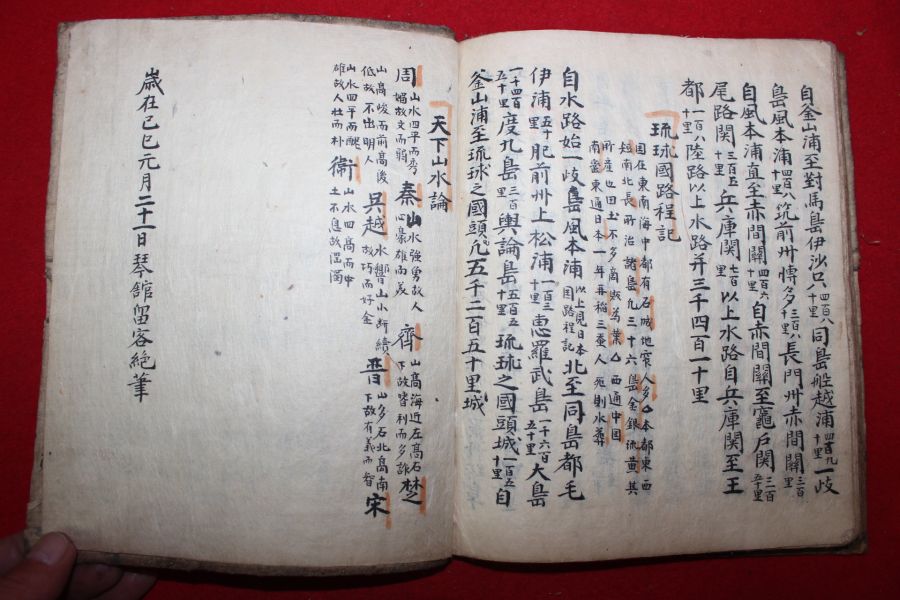 自釜山浦至對馬島伊沙只四百八十里同島舩越浦四百九十里一歧
島風本浦四百八十里筑前州愽多三百八十里長門州赤間關三百里
自風本浦直至赤間關四百六十里自赤間關至竈戶関三百五十里
尾路関三百五十里兵庫関七百里以上水路自兵庫関至王
都一百八十里陸路以上水路并三千四百一十里
琉球國路程記
國在東南海中都有石城地窄人多本都東西
短南北長所治諸島凡三十六島金銀流黃其
所産也田土不多商販爲業西通中国
南蠻東通日本一年再稻三蚕人死則水葬
自水路始一歧島風本浦以上見日本国路程記北至同島都毛
伊浦五十里肥前州上松浦一百三十里惠羅武島一千六百五十里大島
一千四百五十里度九島三百里輿論島五百五十里琉球之國頭城一百五十里自
釜山浦至琉球之國頭凡五千二百五十里城
天下山水論
周山水四平而秀媚故文而弱秦山水強勇故人心豪雄而義齊山高海近左高石下故皆利而多詐楚
山高峻而前高後低故不出明人吳越水響山小斷續故巧而好金晋山多石北高南下故有義而智宋
山水四平而醜雄故人壯而朴衛山水四高而中土不息故淫溺
歲在己巳元月二十一日琴舘留客絶筆